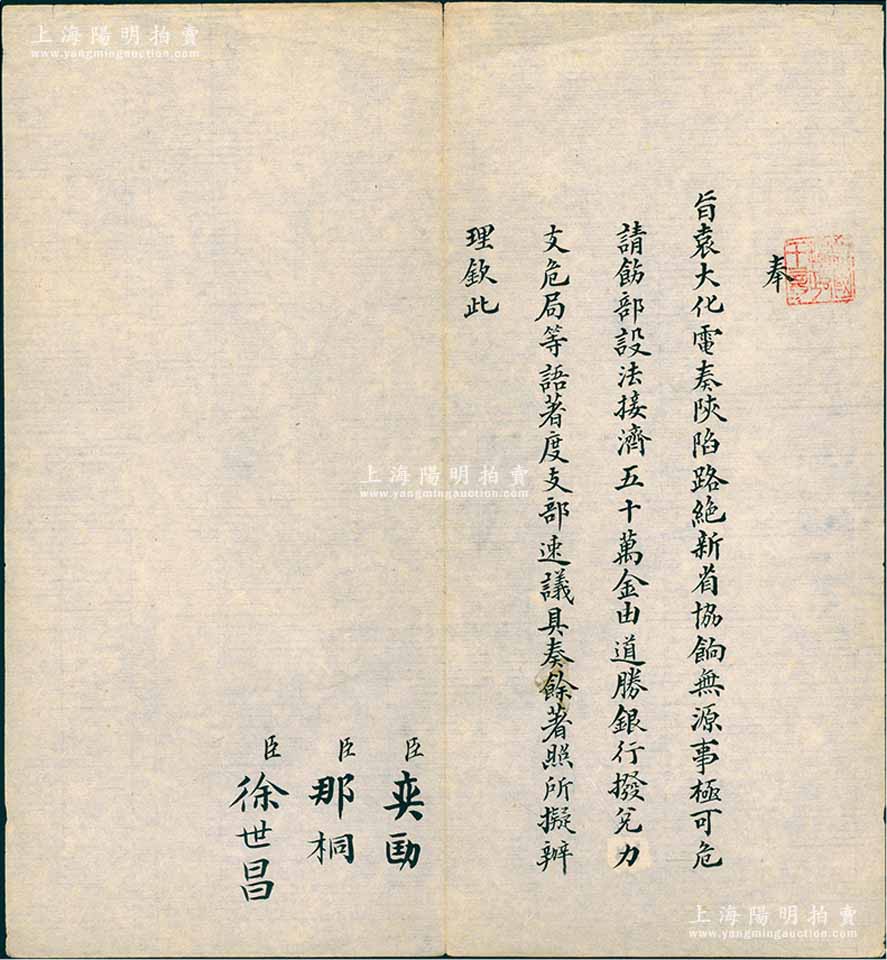 上海陽明拍賣
www.yangmingauction.com
奉
旨袁大化電奏陝陷路絶新省協餉無源事極可危
請飭部設法接濟五十萬金由道勝銀行撥兌力
支危局等語著度支部速議具奏餘著照所擬辦
理欽此
臣奕劻
臣那桐
臣徐世昌
上海陽明拍賣
www.yangmingauction.com
上海陽明拍賣
www.yangmingauction.com